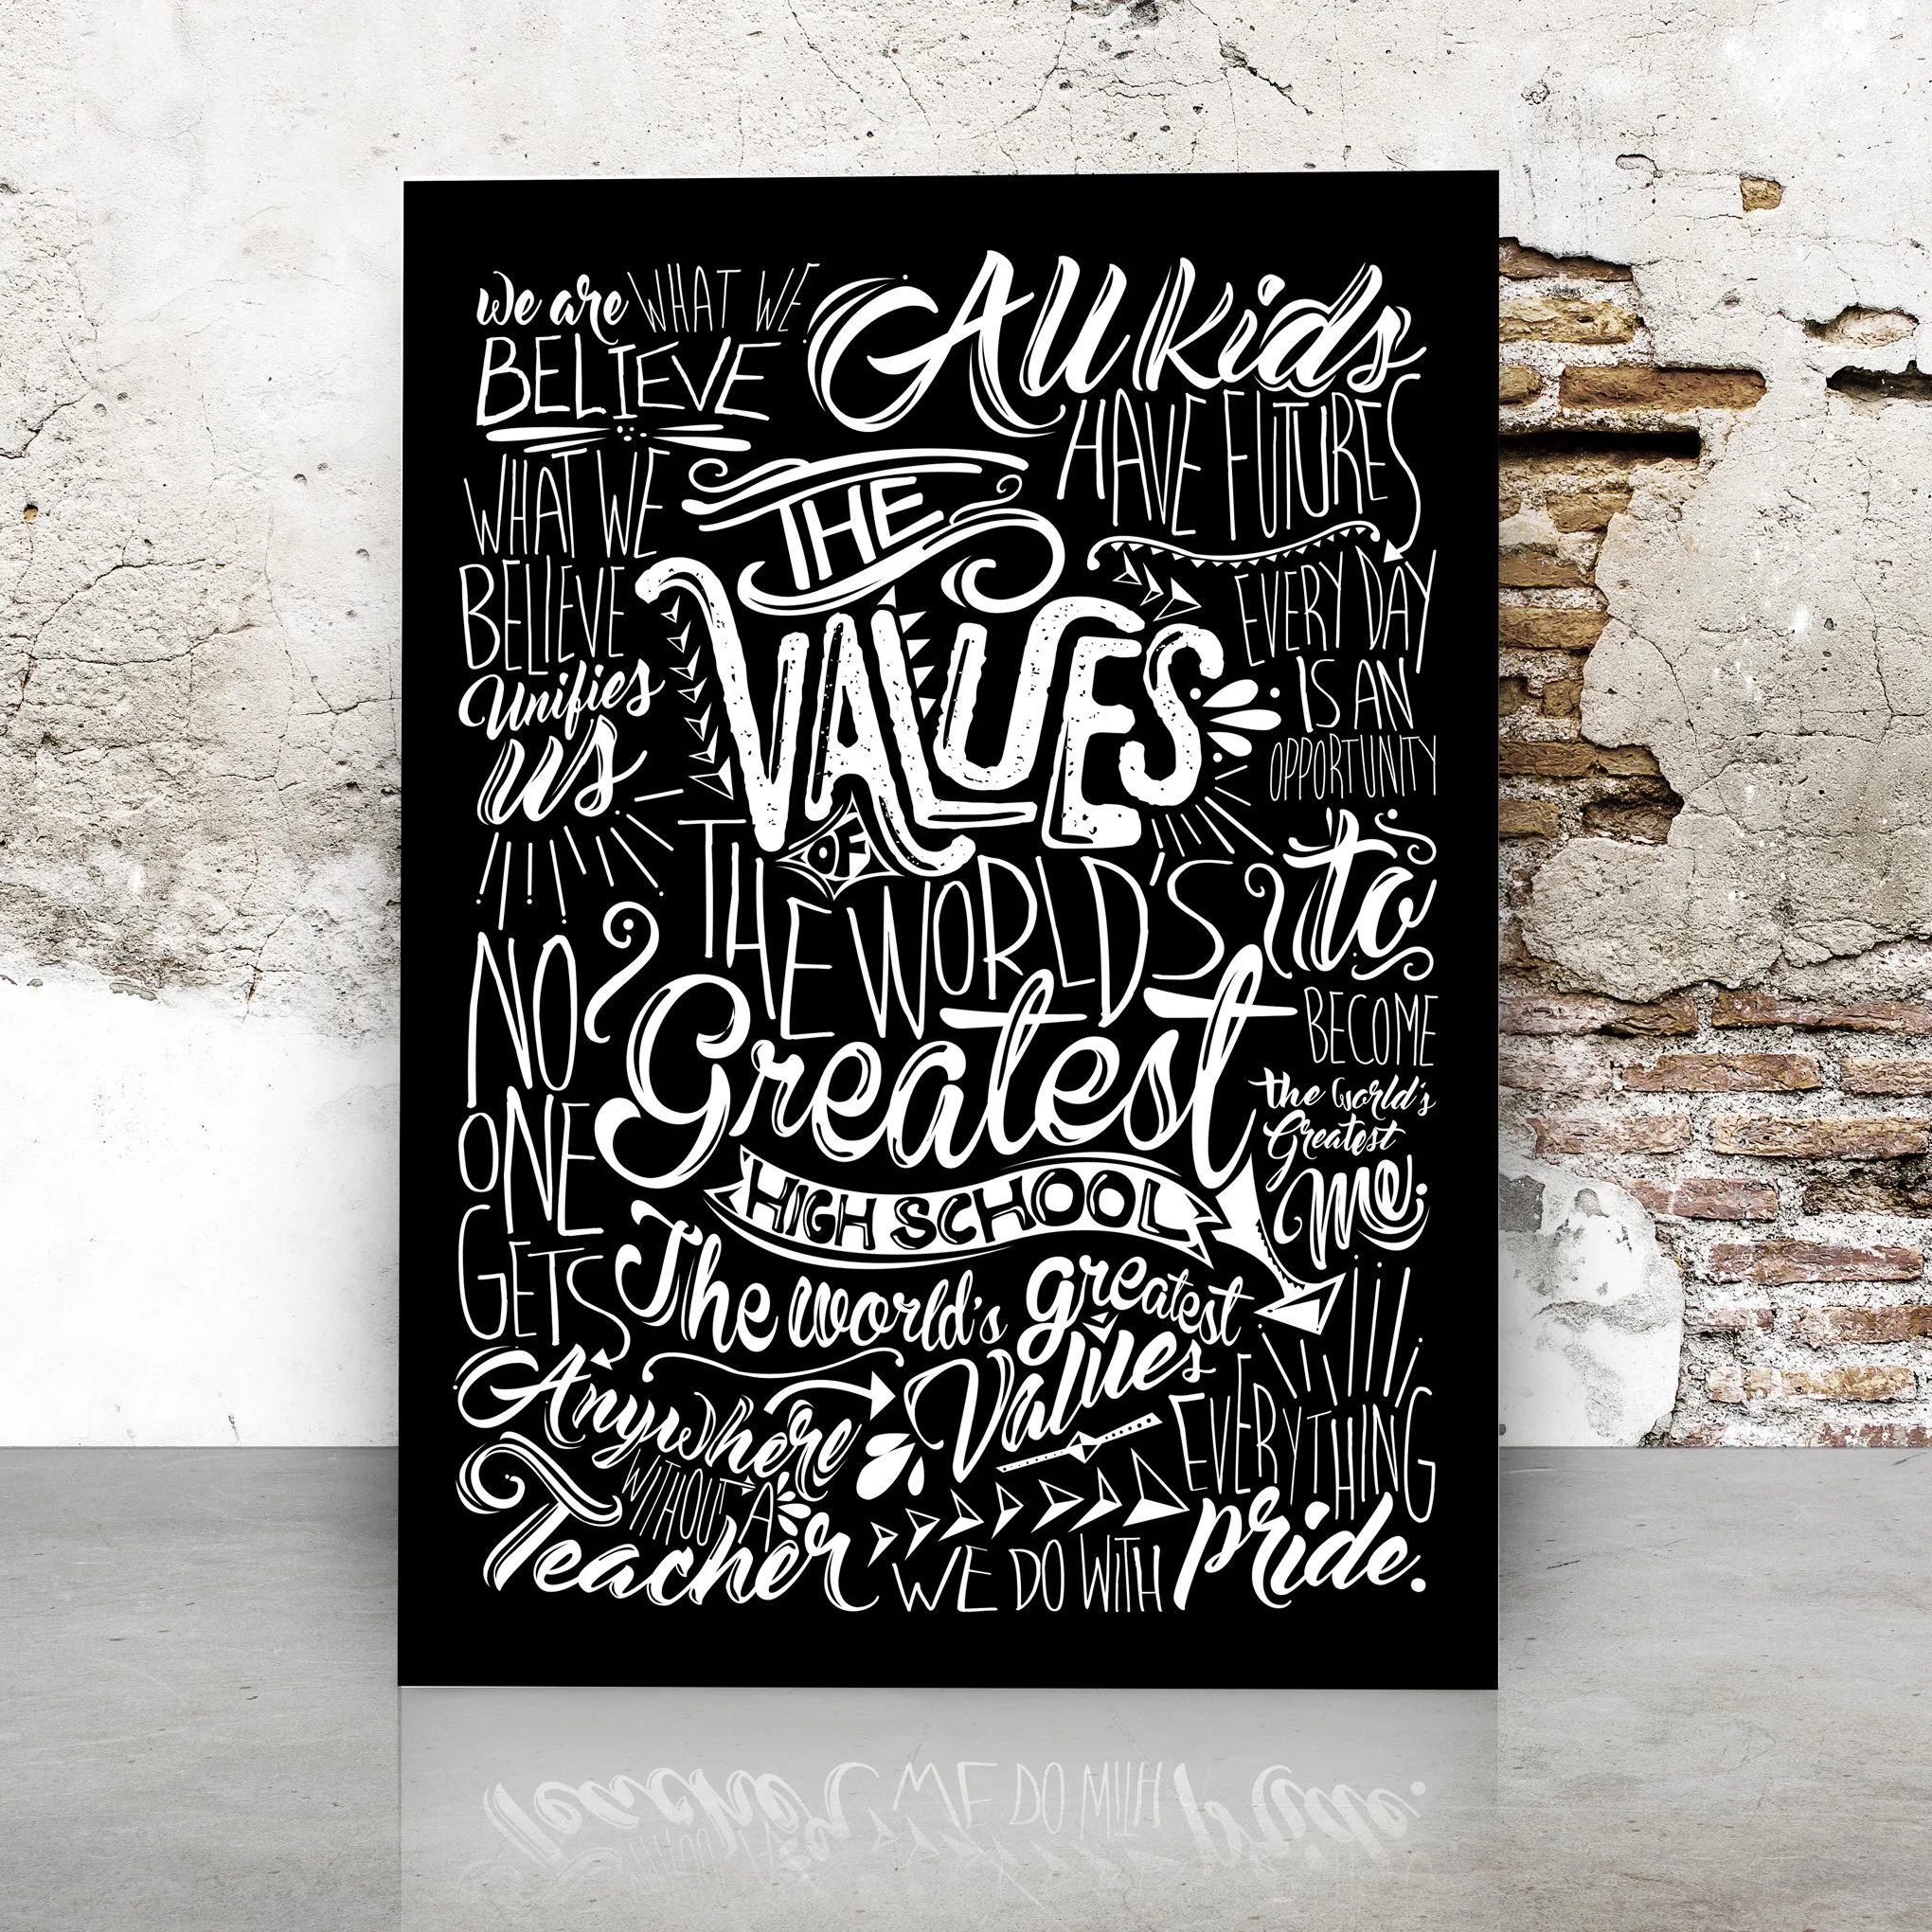 We are WHAT WE
BELIEVE
WHAT WE
BELIEVE
Unifies
us
NO
ONE
GETS
Anywhere
WITHOUT A
Teacher
THE
VALUES
OF
THE WORLD'S
Greatest
HIGH SCHOOL
The world's greatest
Values
All kids
HAVE FUTURES
EVERY DAY
IS AN
OPPORTUNITY
to
BECOME
the world's
Greatest
me
EVERYTHING
WE DO WITH pride.
Teacher WE DO WITH pride.
WITHOUT A